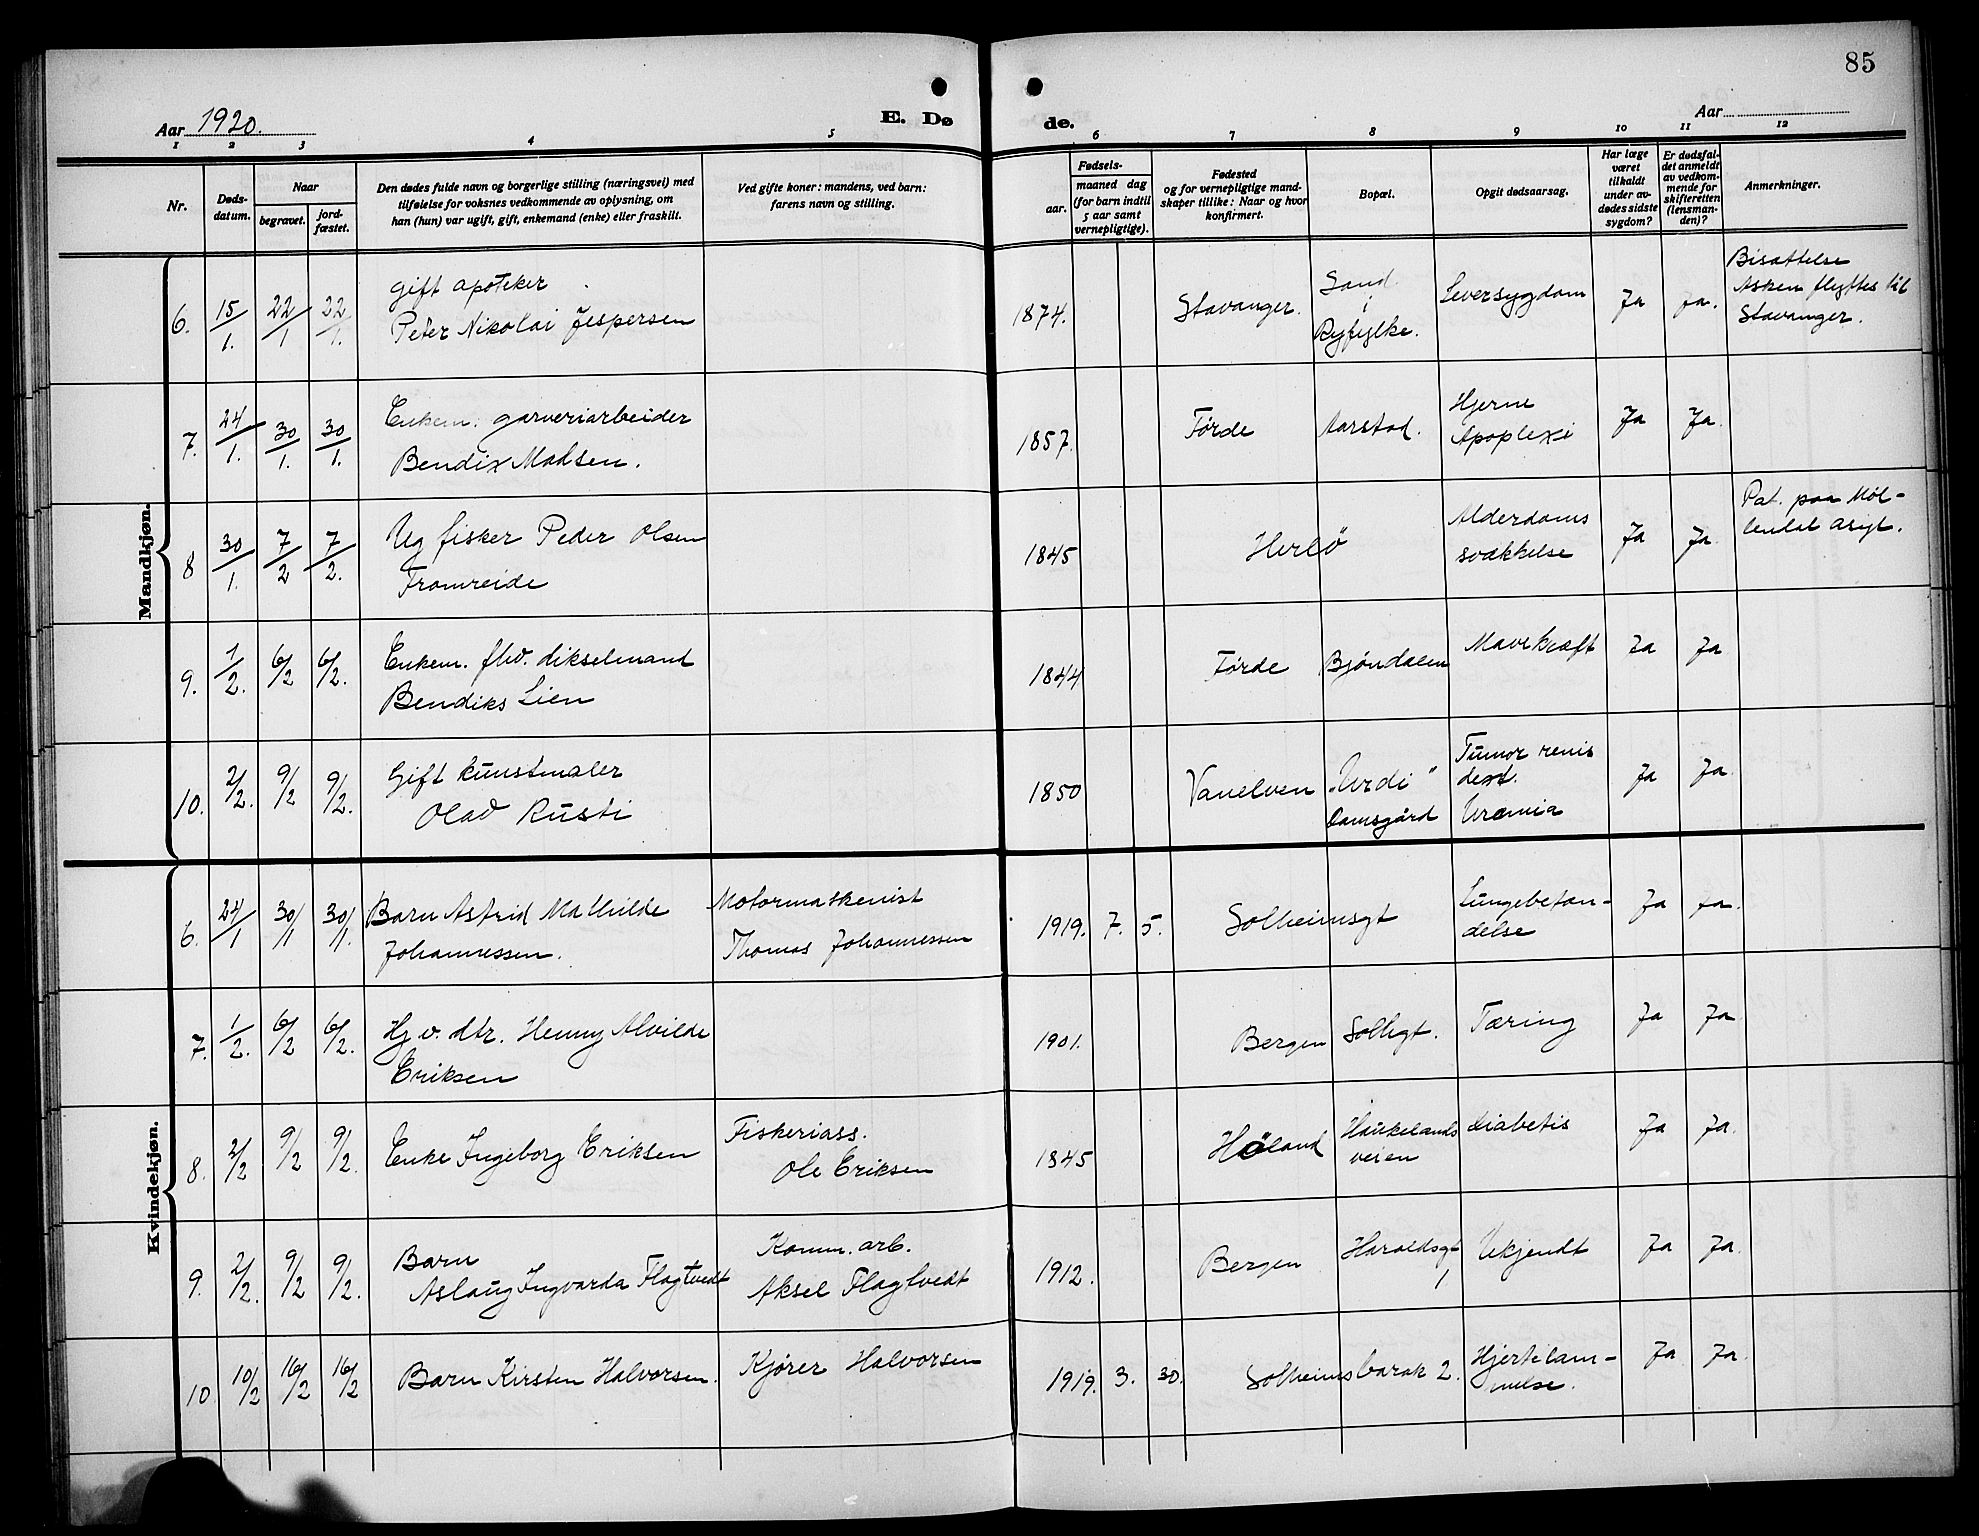 85
Aar 1920.
E. Dø
de.
Aar
1 2 3 4 5 6 7 8 9 10 11 12
Nr.
Døds-
datum.
Naar
begravet.
jord-
fæstet.
Den dødes fulde navn og borgerlige stilling (næringsvei) med
tilføielse for voksnes vedkommende av oplysning, om
han (hun) var ugift, gift, enkemand (enke) eller fraskilt.
Ved gifte koner: mandens, ved barn:
farens navn og stilling.
Fødsels-
aar.
maaned dag
(for barn indtil
5 aar samt
vernepligtige).
Fødested
og for vernepligtige mand-
skaper tillike: Naar og hvor
konfirmert.
Bopæl.
Opgit dødsaarsag.
Har læge
været
tilkaldt
under av-
dødes sidste
sygdom?
Er dødsfal-
det anmeldt
av vedkom-
mende for
skifteretten
(lensman-
den)?
Anmerkninger.
Mandkjøn.
6. 15/1. 22/1 22/1.
gift apoteker
Peter Nikolai Jespersen
1874.
Stavanger.
Sand
i
Ryfylke.
Leversygdom
Ja
Ja.
Bisættelse
Asken flyttes til
Stavanger.
7. 24/1. 30/1. 30/1.
Enkem. garveriarbeider
Bendix Madsen.
1857.
Førde
Aarstad.
Hjerne
Apoplexi
Ja
Ja.
8 30/1. 7/2 7/2.
Ug fisker Peder Olsen
Tromreide
1845
Herlø
Alderdoms
svækkelse
Ja
Ja.
Pat. paa Møl-
lendal asigt.
9. 1/2. 6/2 6/2.
Enkem. fhv. dikselmand
Bendiks Lien
1844
Førde
Bjøndalen
Mavekræft
Ja
Ja
10. 2/2. 9/2 9/2.
Gift kunstmaler
Olav Rusti
1850
Vanelven
"Urdi"
Damsgård
Tumor renis
dext.
Uræmia
Ja
Ja.
Kvindekjøn.
6. 24/1 30/1 30/1.
Barn Astrid Mathilde
Johannessen.
Motormaskenist
Thomas Johannessen
1919. 7. 5.
Solheimsgt
Lungebetæn-
delse
Ja
Ja.
7. 1/2. 6/2 6/2.
Hj. v. dtr. Henny Alvilde
Eriksen
1901.
Bergen
Solligt.
Tæring
Ja
Ja
8. 2/2 9/2 9/2.
Enke Ingeborg Eriksen
Fiskeriass.
Ole Eriksen
1845
Høland
Haukelands
veien
diabetis
Ja
Ja.
9. 2/2. 9/2 9/2.
Barn
Aslaug Ingvarda Flagtvedt
Komm. arb.
Aksel Flagtvedt
1912.
Bergen
Haroldsgt
1
Ukjendt
Ja
Ja.
10. 10/2 16/2 16/2
Barn Kirsten Halvorsen.
Kjører Halvorsen
1919. 3. 30.
Solheimsbarak 2.
Hjertelam-
melse.
Ja
Ja.